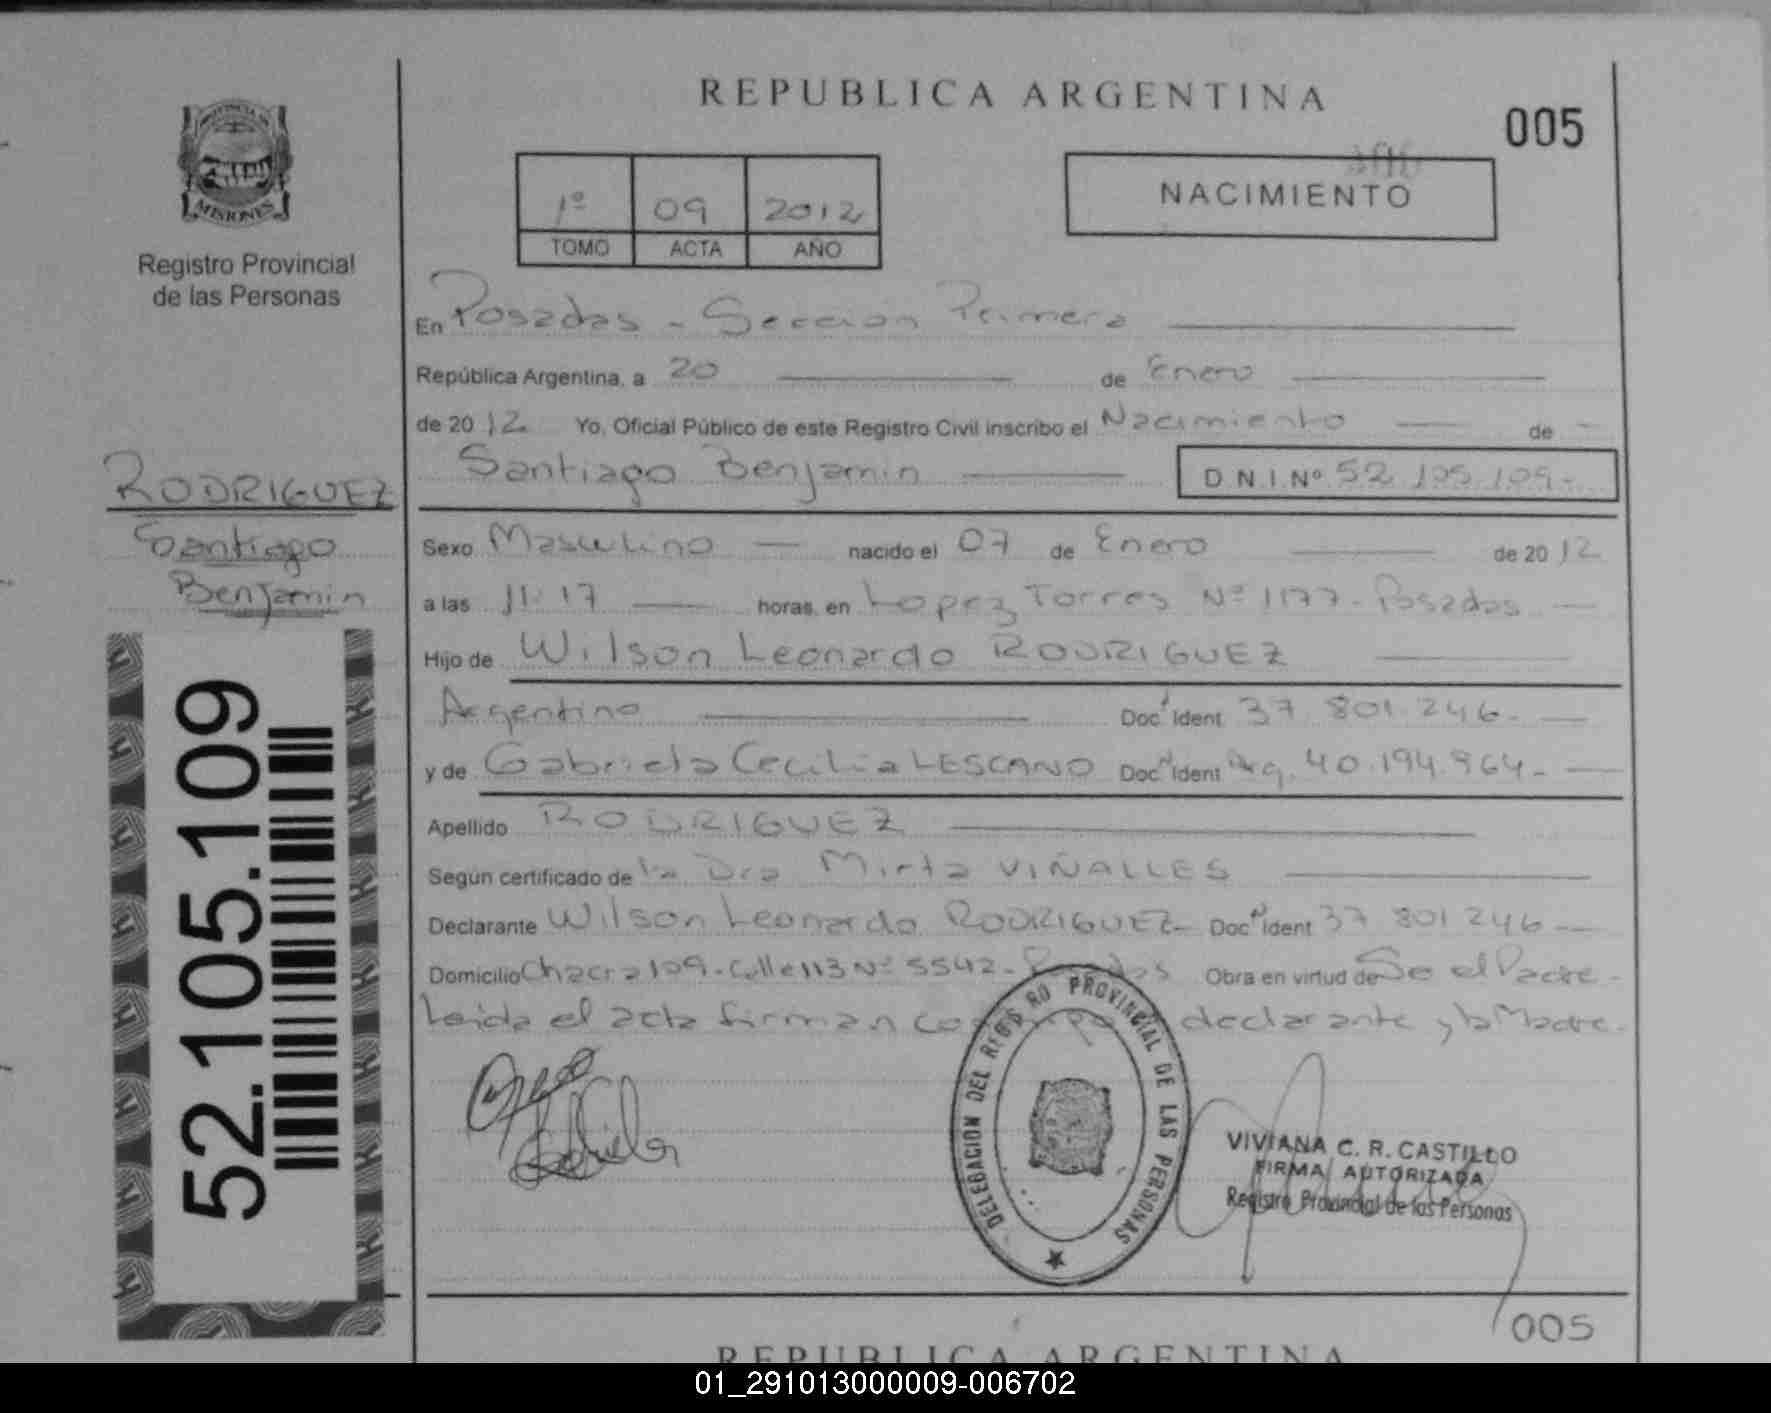 REPUBLICA ARGENTINA
005
PROVINCIA DE
MISIONES
Registro Provincial
de las Personas
1º 09 2012
TOMO ACTA AÑO
NACIMIENTO
En Posadas - Seccion Primera
República Argentina, a 20 de Enero
de 2012 Yo, Oficial Público de este Registro Civil inscribo el Nacimiento de
Santiago Benjamin D.N.I.Nº 52.105.109-
RODRIGUEZ
Santiago
Benjamin
Sexo Masculino nacido el 07 de Enero de 2012
a las 11:17 horas, en Lopez Torres Nº 1177 - Posadas
Hijo de Wilson Leonardo RODRIGUEZ
Argentino Doc Ident 37.801.246-
y de Gabriela Cecilia LESCANO Doc Ident Arg. 40.194.964-
Apellido RODRIGUEZ
Según certificado de la Dra Mirta VIÑALLES
Declarante Wilson Leonardo RODRIGUEZ- Doc Ident 37 801 246
Domicilio Chacra 109 - Calle 113 Nº 5542 - Posadas Obra en virtud de Se el Padre.
Leida el acta firman declarante y la Madre.
52.105.109
DELEGACION DEL REGISTRO PROVINCIAL DE LAS PERSONAS
VIVIANA C. R. CASTILLO
FIRMA AUTORIZADA
Registro Provincial de las Personas
005
REPUBLICA ARGENTINA
01_291013000009-006702